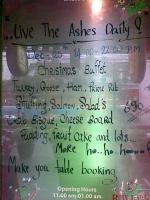 Live The Ashes Daily!
Dec 25th 11:00 - 22:00 P.M
Christmas Buffet
Turkey, Goose, Ham, Prime Rib
Stuffing, Salmon, Salad's
Bisque, Cheese Board 690
Pudding, Fruit Cake and lots...
More ho.. ho.. ho.....!
Make you table booking
Opening Hours
11.00 am-01.00 am